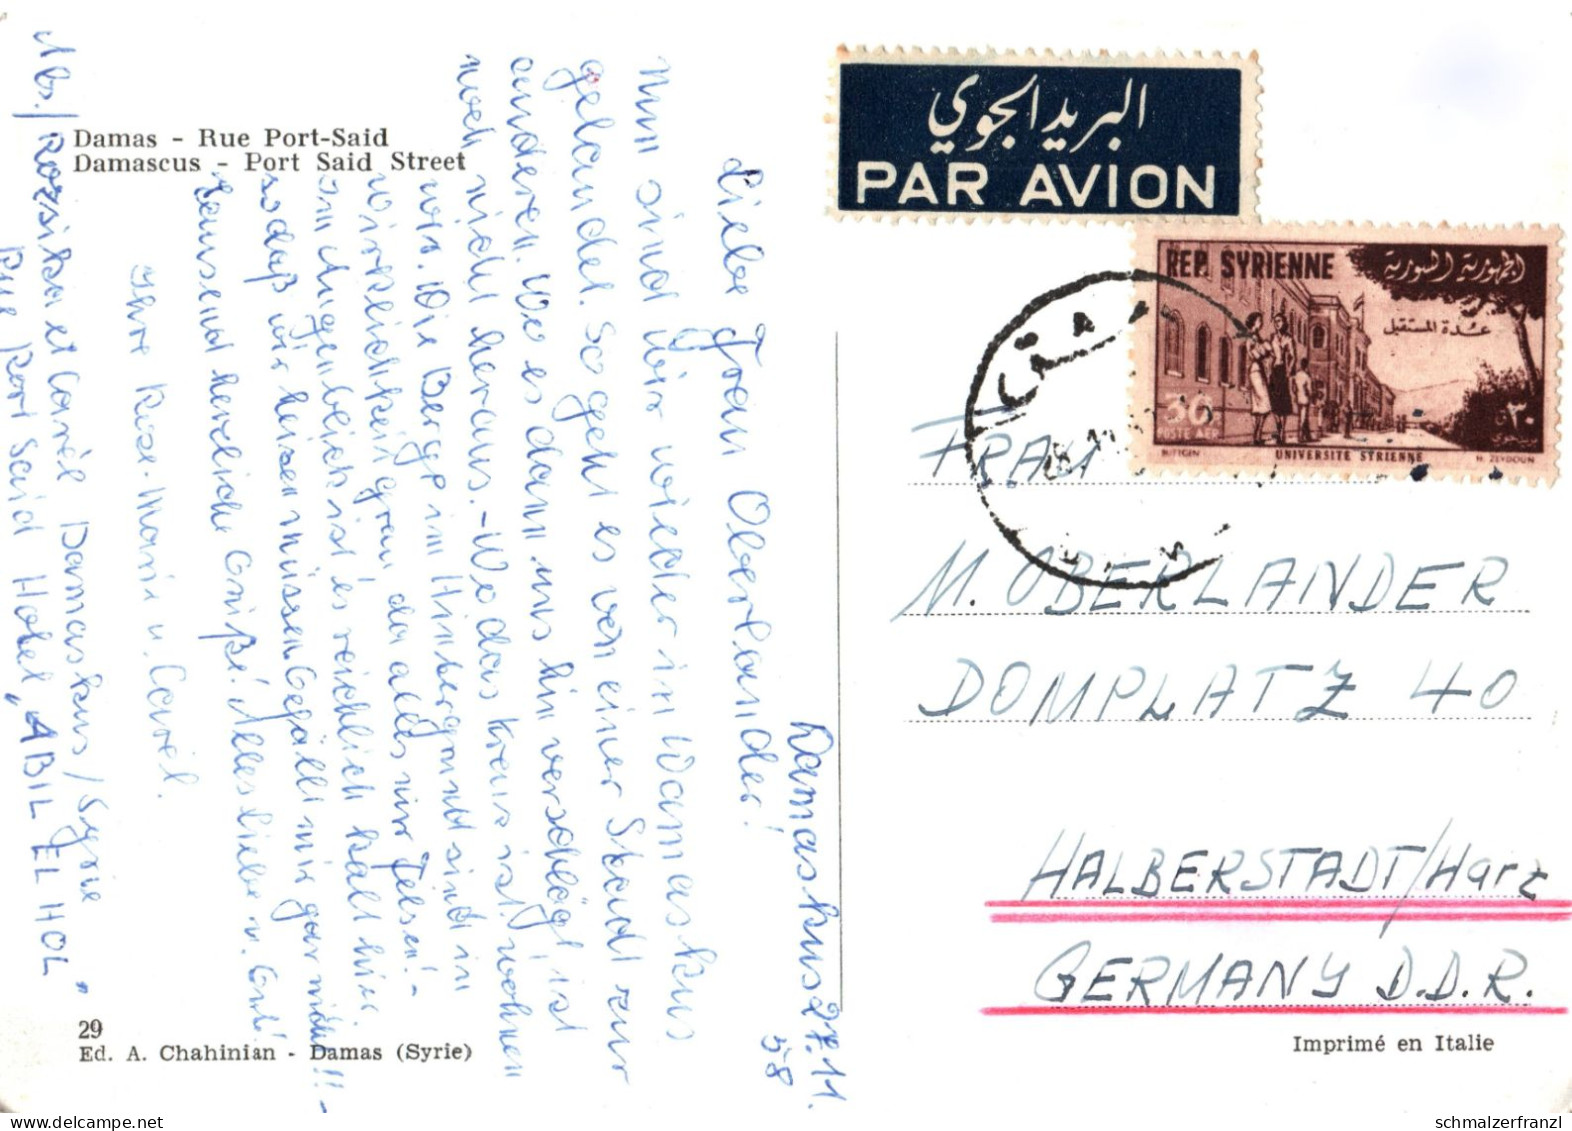 Damas - Rue Port-Said
Damascus - Port Said Street
Damaskus 27.11.
58
Liebe Frau Oberländer!
Nun sind wir wieder in Damaskus
gelandet. So geht es von einer Stadt zur
anderen. Wo es dann uns hin verschlägt, ist
noch nicht heraus. - Wo das Kreuz ist wohnen
wir. Die Berge im Hintergrund sind in
Wirklichkeit grau da alles nur Felsen! -
Im Augenblick ist es reichlich kalt hier,
sodaß wir heizen müssen. Gefällt mir gar nicht!! -
Tausend herzliche Grüße! Alles Liebe u. Gute!
Ihre Rose-Marie u. Carél.
Abs./ Rozsika et Carél Damaskus/Syrie
Rue Port Said Hotel „ABIL EL HOL"
29
Ed. A. Chahinian - Damas (Syrie)
البريد الجوي
PAR AVION
REP. SYRIENNE
الجمهورية السورية
عدة المستقبل
30
٣٠
POSTE AER.
UNIVERSITE SYRIENNE
H. ZEYDOUN
FRAU
M. OBERLÄNDER
DOMPLATZ 40
HALBERSTADT/Harz
GERMANY D.D.R.
Imprimé en Italie
schmalzerfranzl